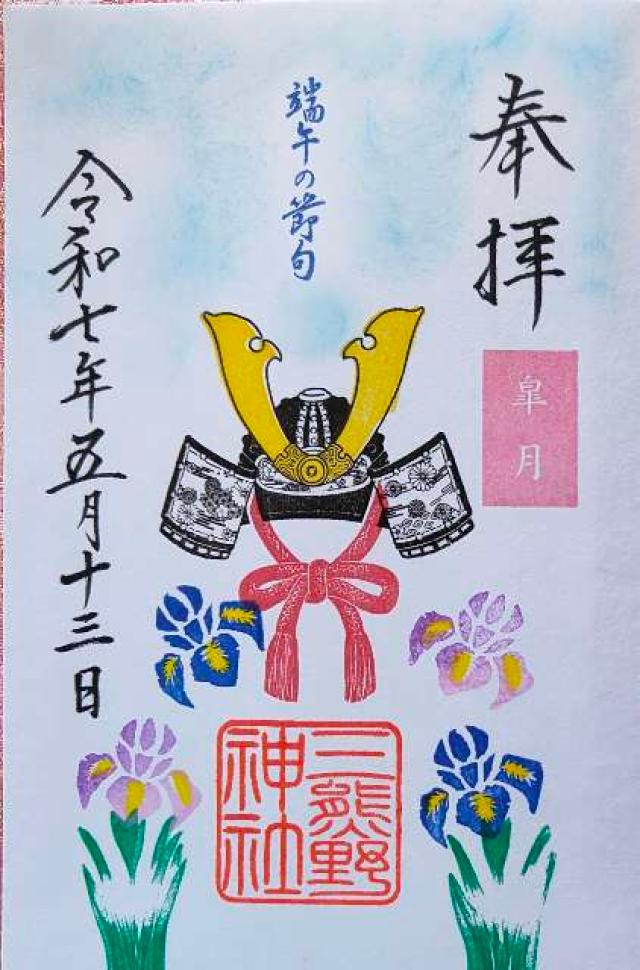 奉拝
皐月
端午の節句
三熊野
神社
令和七年五月十三日